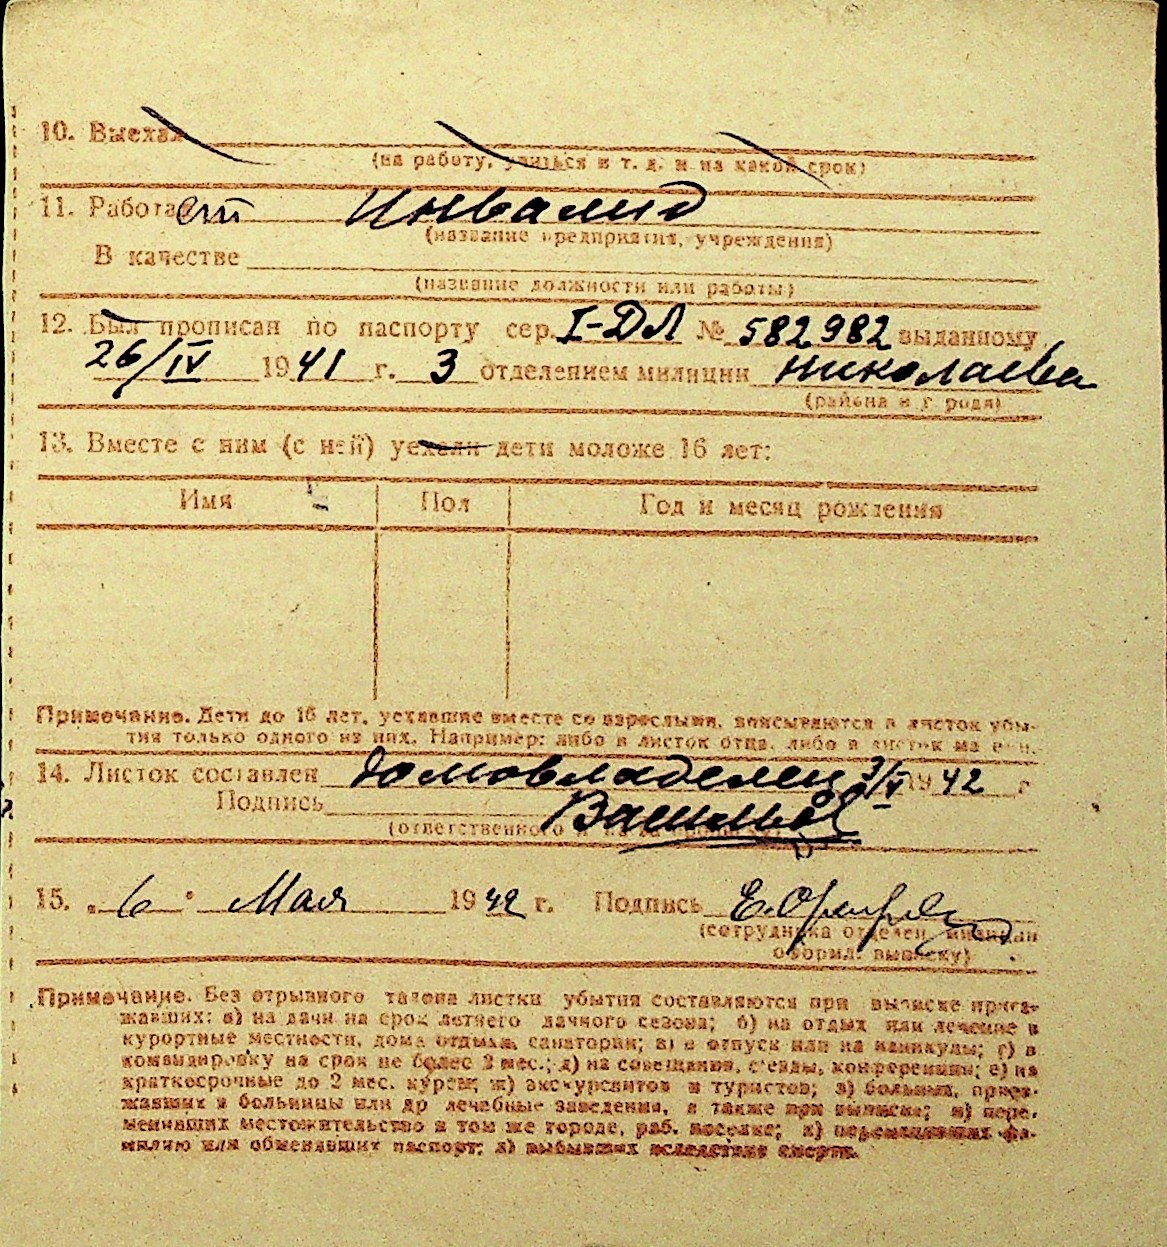 10. Выехал
(на работу, учиться и т. д. и на какой срок)
11. Работает Инвалид
(название предприятия, учреждения)
В качестве
(название должности или работы)
12. Был прописан по паспорту сер. I-ДЛ № 582982 выданному
26/IV 1941 г. 3 отделением милиции Николаева
(района и г рода)
13. Вместе с ним (с ней) уехали дети моложе 16 лет:
Имя Пол Год и месяц рождения
Примечание. Дети до 16 лет, уехавшие вместе со взрослыми, вписываются в листок убы-
тия только одного из них. Например: либо в листок отца, либо в листок ма ери.
14. Листок составлен домовладелец 3/V 1942 г
Подпись
(ответственного
15. „ 6 " Мая 1942 г. Подпись
(сотрудника отделен. милиции
оформл. выписку)
Примечание. Без отрывного талона листки убытия составляются при выписке приез-
жавших: а) на дачи на срок летнего дачного сезона; б) на отдых или лечение в
курортные местности, дома отдыха, санатории; в) в отпуск или на каникулы; г) в
командировку на срок не более 2 мес.; д) на совещания, съезды, конференции; е) на
краткосрочные до 2 мес. курсы; ж) экскурсантов и туристов; з) больных, приез-
жавших в больницы или др лечебные заведения, а также при выписке; и) пере-
менивших местожительство в том же городе, раб. поселке; к) переменивших фа-
милию или обменявших паспорт; л) выбывших вследствие смерти.